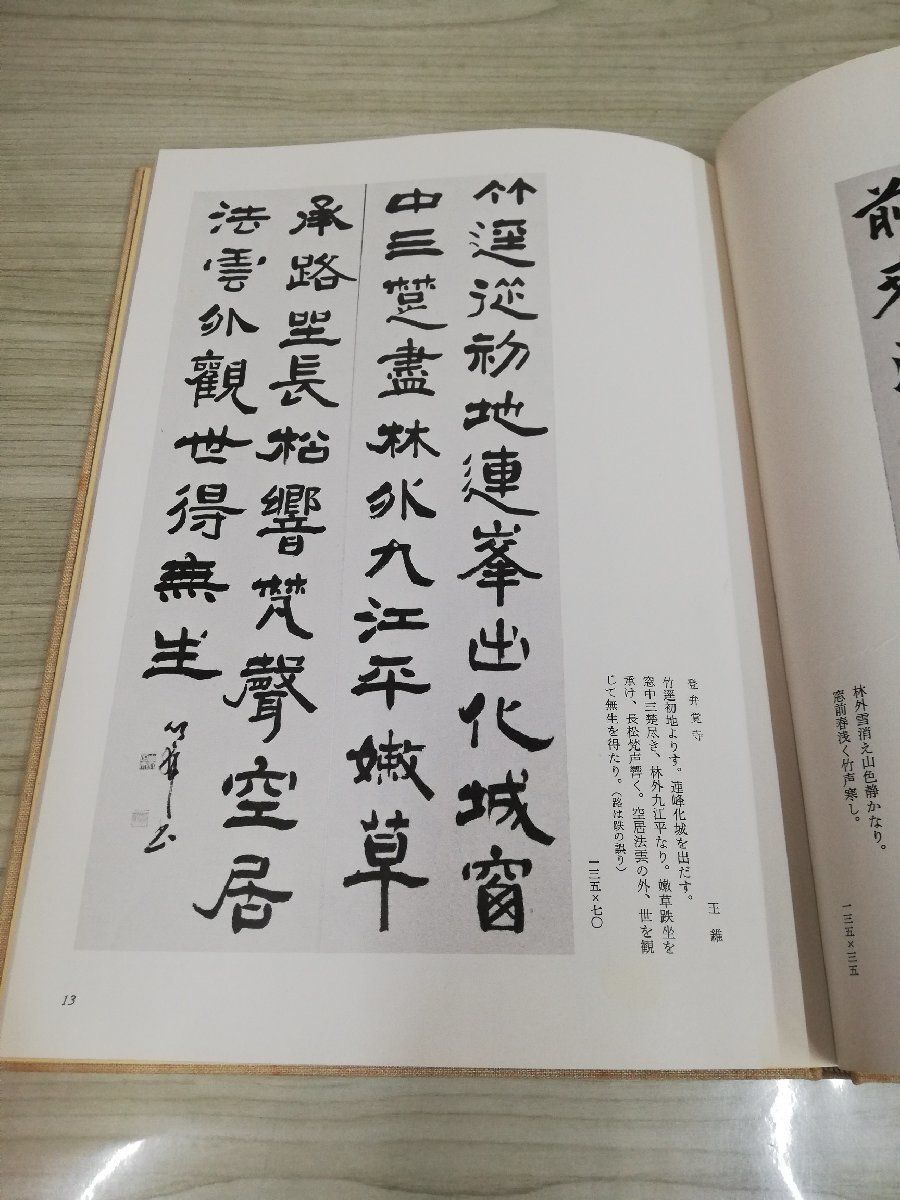 前
林外雪消え山色静かなり。
窓前春浅く竹声寒し。
一三五×三五
竹逕從初地連峯出化城窗
中三楚盡林外九江平嫩草
承路坐長松響梵聲空居
法雲外觀世得無生
登弁覚寺
王維
竹逕初地よりす。連峰化城を出だす。
窓中三楚尽き、林外九江平なり。嫩草趺坐を
承け、長松梵声響く。空居法雲の外、世を観
じて無生を得たり。（路は趺の誤り）
一三五×七〇
13